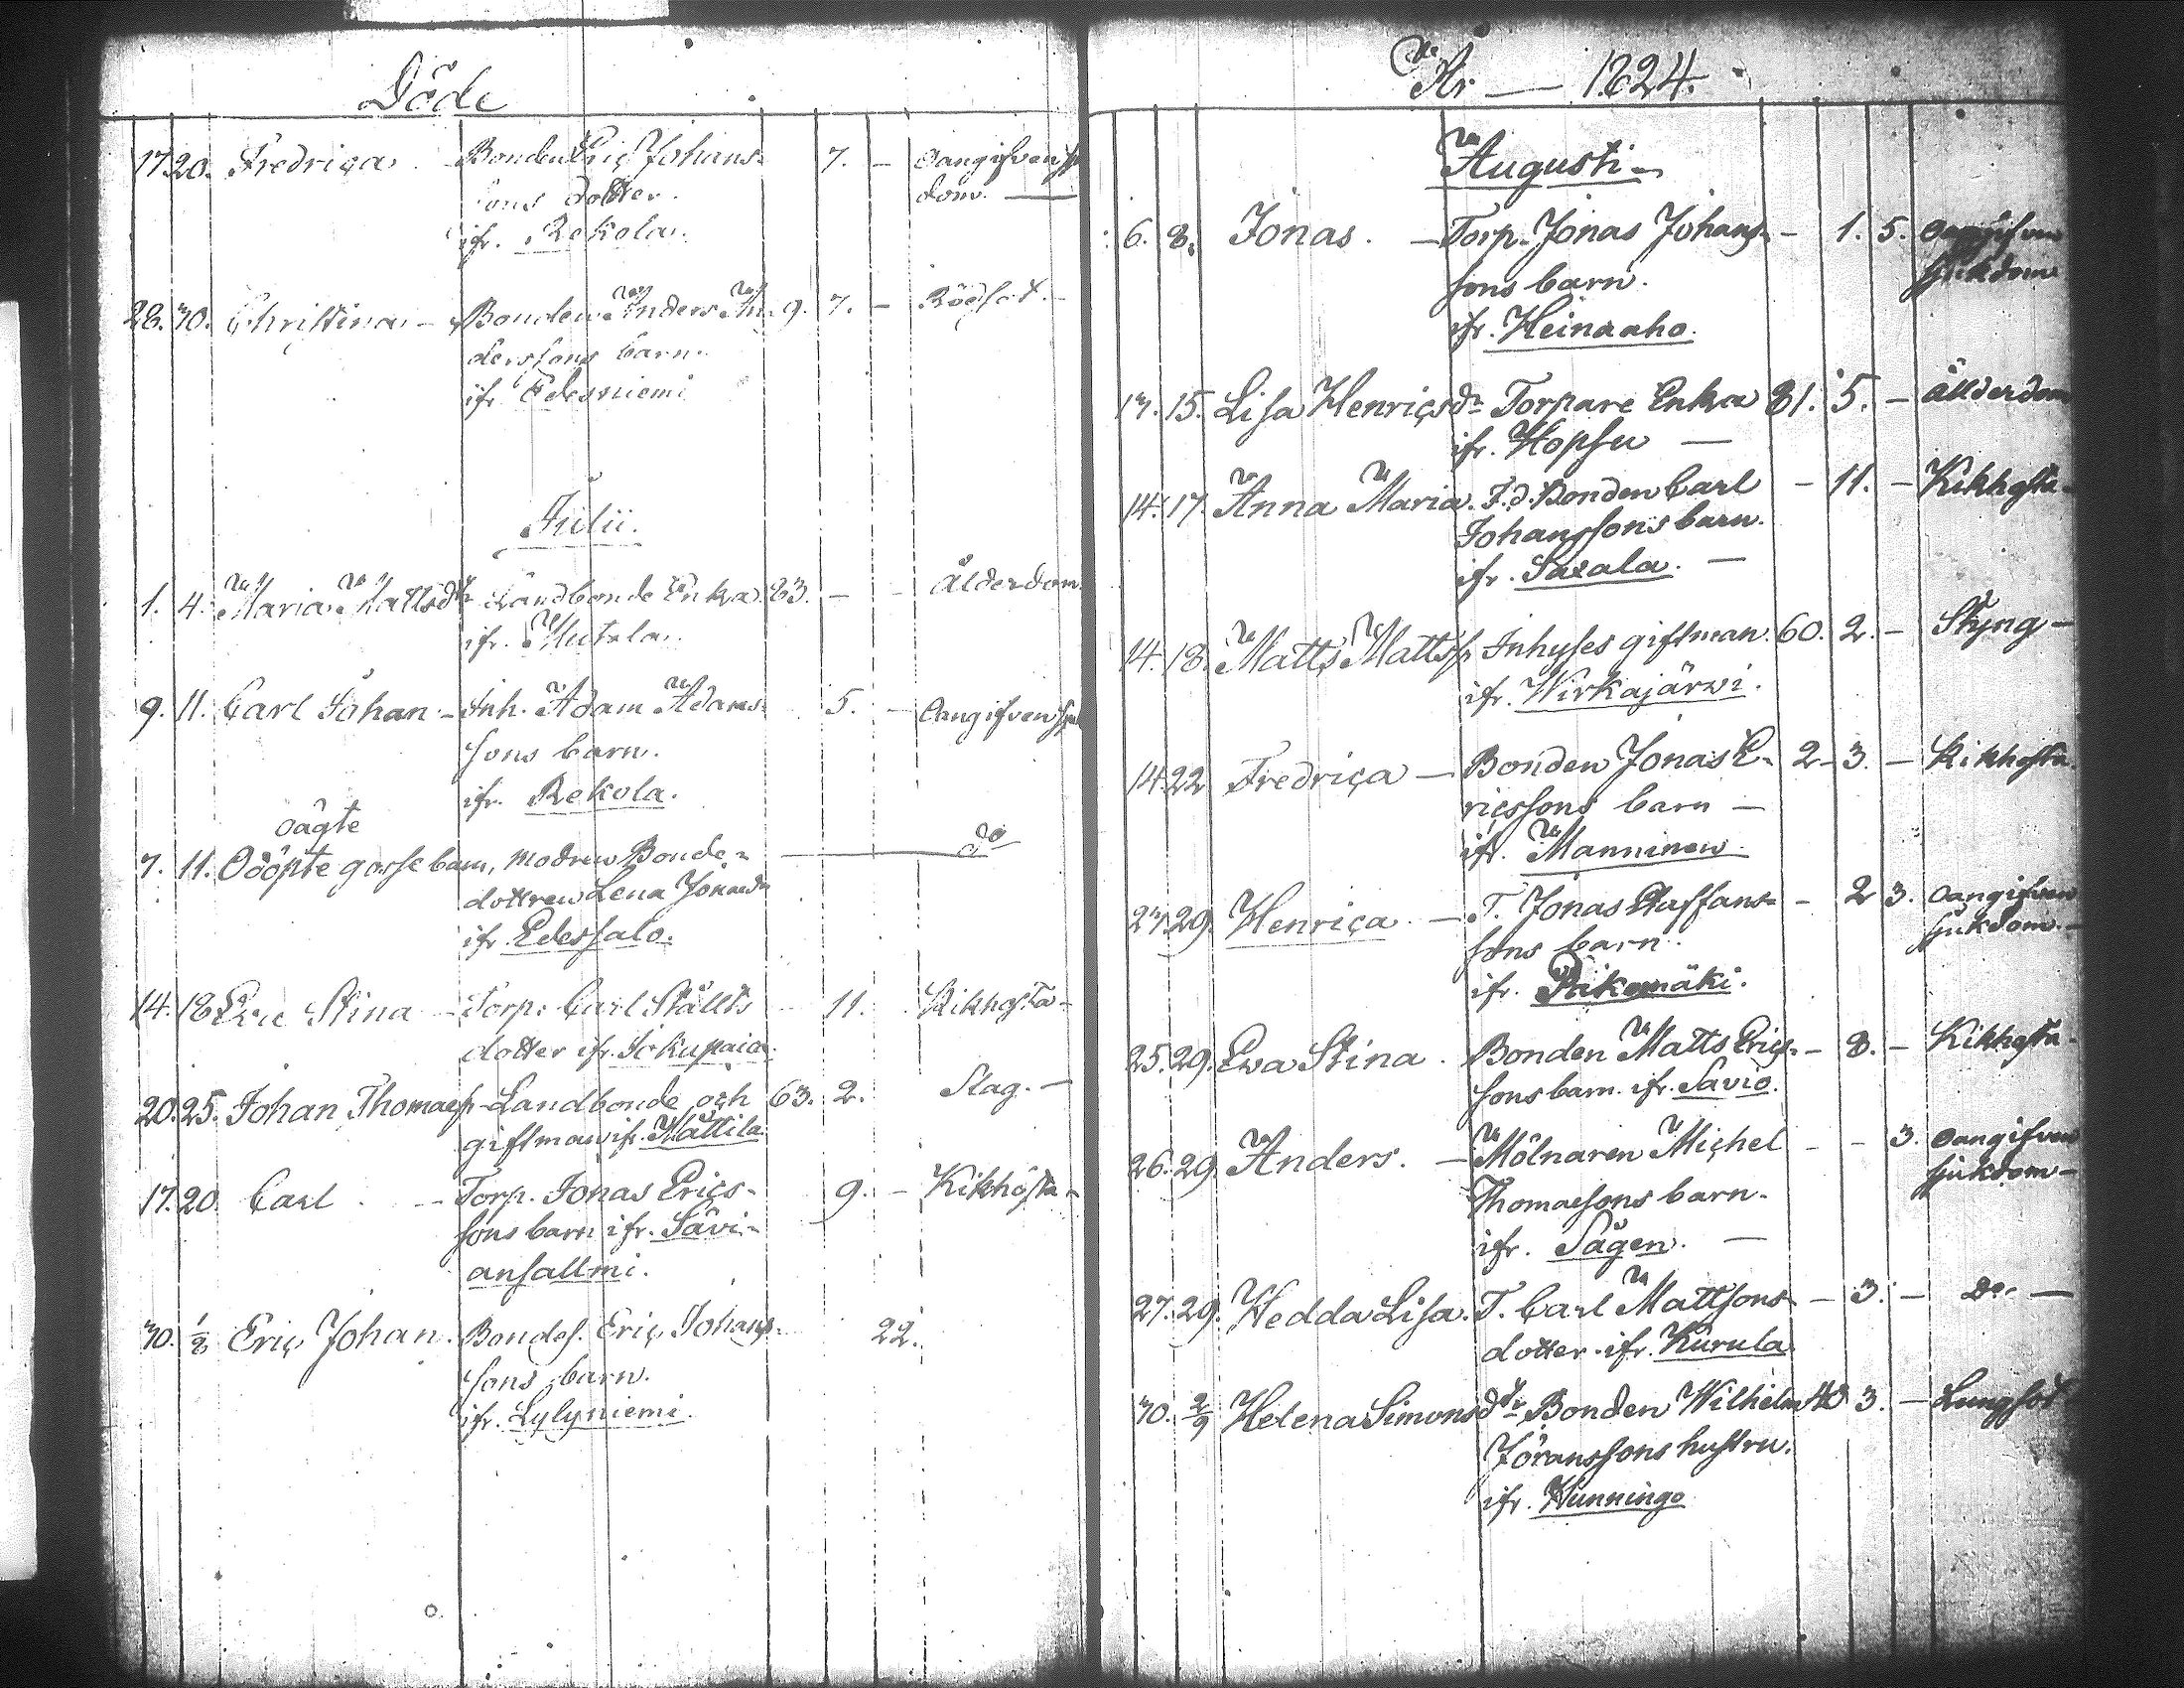 Döde
17. 20. Fredrica Bonden Eric Johans- 7. - Oangifven
sons dotter. dom. —
ifr. Rekola.
28. 30. Christina - Bonden Anders An- 9. 7. - Rödsot. -
derssons barn.
ifr. Edesniemi
Julii.
1. 4. Maria Mattsdr Landbonde Enka 83. - - Ålderdom.
ifr. Mutala.
9. 11. Carl Johan - Inh. Adam Adams- 5. - Oangifven
sons barn.
ifr. Rekola.
oägte
7. 11. Odöpte gossebarn, modren Bonde- — do
dottren Lena Jonasdr
ifr. Edessalo.
14. 18. Eva Stina - Torp. Carl Ställts 11. Kikhosta -
dotter ifr. Jokupaia.
20. 25. Johan Thomaess. Landbonde och 63. 2. Slag. -
giftman ifr. Mattila
17. 20. Carl - Torp. Jonas Erics- 9. - Kikhosta -
sons barn ifr. Savi-
ansallmi.
30. 1/8 Eric Johan. Bondes. Eric Johans- 22.
sons barn.
ifr. Lylyniemi.
År — 1824.
Augusti -
6. 8. Jonas. - Torp. Jonas Johans- - 1. 5. Oangifven
sons barn. sjukdom
ifr. Heinaaho.
13. 15. Lisa Henricsdr Torpare Enka 81. 5. - Ålderdom
ifr. Hopsu —
14. 17. Anna Maria. F.d. Bonden Carl - 11. - Kikhosta -
Johanssons barn.
ifr. Saxala. —
14. 18. Matts Mattss. Inhyses giftman. 60. 2. - Styng -
ifr. Wirkajärwi.
14. 22 Fredrica - Bonden Jonas E- 2 - 3. - Kikhosta.
ricssons barn -
ifr. Manninen.
23. 29. Henrica. - T. Jonas Staffans- - 2 3. Oangifven
sons barn. sjukdom. -
ifr. Pikemäki.
25. 29. Ewa Stina. Bonden Matts Erics- - 8. - Kikhosta.
sons barn. ifr. Savio.
26. 29. Anders. - Mölnaren Michel - - 3. Oangifven
Thomaesons barn. sjukdom -
ifr. Sågen. —
27. 29. Hedda Lisa. T. Carl Mattsons - 3. - Do. —
dotter. ifr. Kurula
30. 2/9 Helena Simonsdr Bonden Wilhelm 40 3. - Lungsot
Jöranssons hustru.
ifr. Hunningo